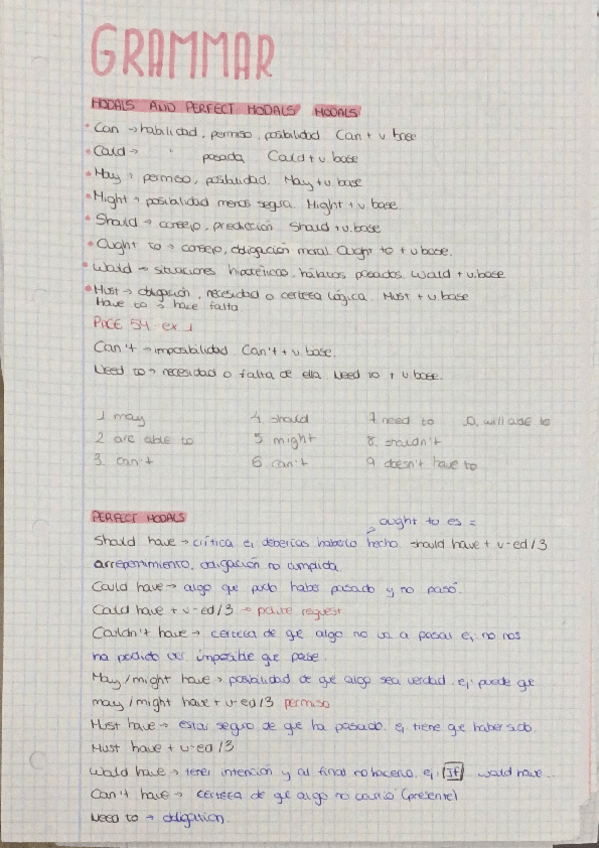 GRAMMAR
MODALS AND PERFECT MODALS MODALS
• Can → habilidad, permiso, posibilidad Can + v base
• Could → " pasada, Could + v base
• May → permiso, posibilidad. May + v. base
• Might → posibilidad menos segura. Might + v base.
• Should → consejo, predicción Should + v. base
• Ought to → consejo, obligación moral. Ought to + v base.
• Would → situaciones hipotéticas, hábitos pasados. Would + v. base
• Must → obligación, necesidad o certeza lógica Must + v base
Have to → hace falta
PAGE 54 ex 1
Can't → imposibilidad. Can't + v base.
Need to → necesidad o falta de ella Need to + v base.
1 may 4 should 7 need to 10. will able to
2 are able to 5 might 8 shouldn't
3. can't 6 can't 9 doesn't have to
PERFECT MODALS
ought to es =
Should have → crítica ej deberías haberlo hecho. should have + v-ed/3
arrepentimiento, obligación no cumplida.
Could have → algo que pudo haber pasado y no pasó.
Could have + v-ed/3 → polite request
Couldn't have → certeza de qe algo no va a pasar ej no nos
ha podido ver imposible qe pase.
May/might have → posibilidad de qe algo sea verdad. ej puede qe
may/might have + v-ed/3 permiso
Must have → estar seguro de qe ha pasado. ej tiene qe haber sido.
Must have + v-ed/3
Would have → tener intención y al final no hacerlo. ej. If would have...
Can't have → certeza de qe algo no ocurrió (presente)
Need to → obligation